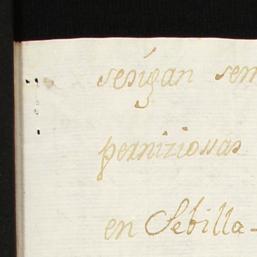 sesígan sem
perniziossas
en Sebilla-